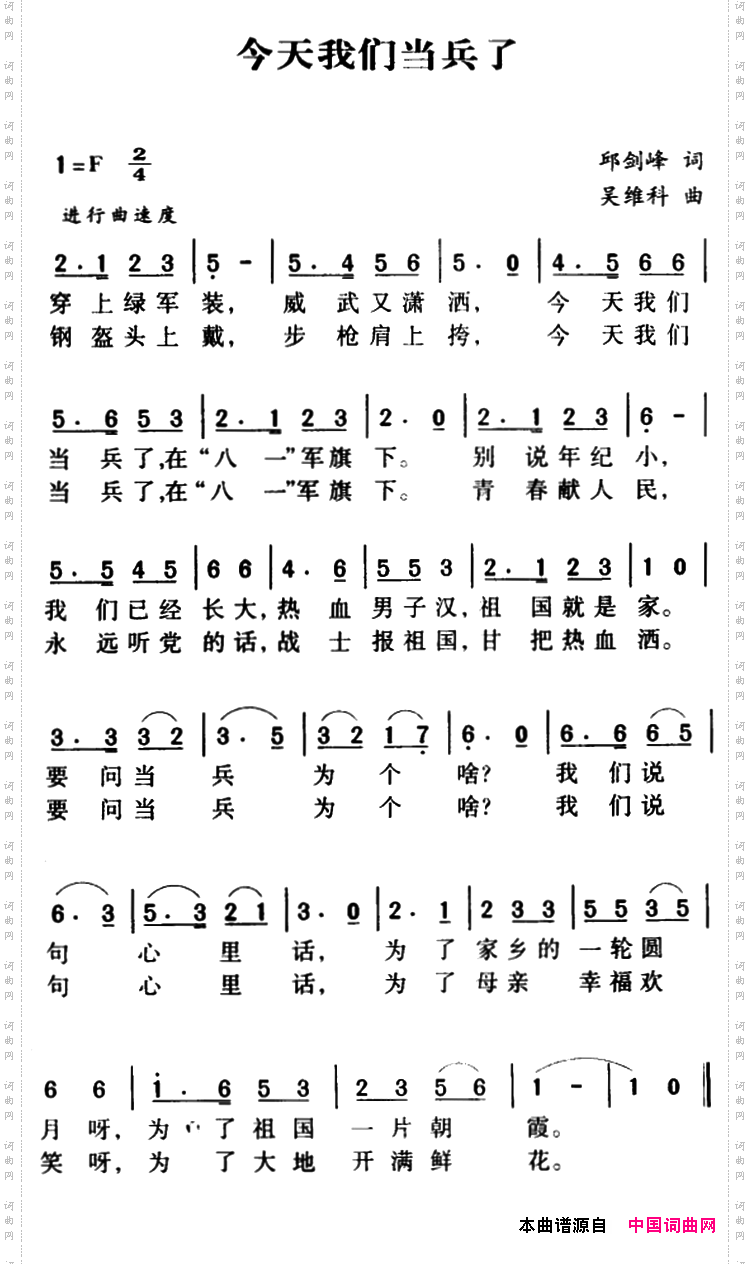 今天我们当兵了
1=F 2/4
邱剑峰 词
吴维科 曲
进行曲速度
2·1 2 3 | 5 - | 5·4 5 6 | 5· 0 | 4·5 6 6 |
穿上绿军装, 威武又潇洒, 今天我们
钢盔头上戴, 步枪肩上挎, 今天我们
5·6 5 3 | 2·1 2 3 | 2· 0 | 2·1 2 3 | 6 - |
当兵了,在“八一”军旗下。 别说年纪小,
当兵了,在“八一”军旗下。 青春献人民,
5·5 4 5 | 6 6 | 4·6 | 5 5 3 | 2·1 2 3 | 1 0 |
我们已经长大,热血男子汉,祖国就是家。
永远听党的话,战士报祖国,甘把热血洒。
3·3 3 2 | 3·5 | 3 2 1 7 | 6· 0 | 6·6 6 5 |
要问当兵为个啥? 我们说
要问当兵为个啥? 我们说
6·3 | 5·3 2 1 | 3· 0 | 2·1 | 2 3 3 | 5 5 3 5 |
句心里话, 为了家乡的一轮圆
句心里话, 为了母亲幸福欢
6 6 | 1·6 5 3 | 2 3 5 6 | 1 - | 1 0 ‖
月呀,为了祖国一片朝霞。
笑呀,为了大地开满鲜花。
本曲谱源自 中国词曲网
词曲网